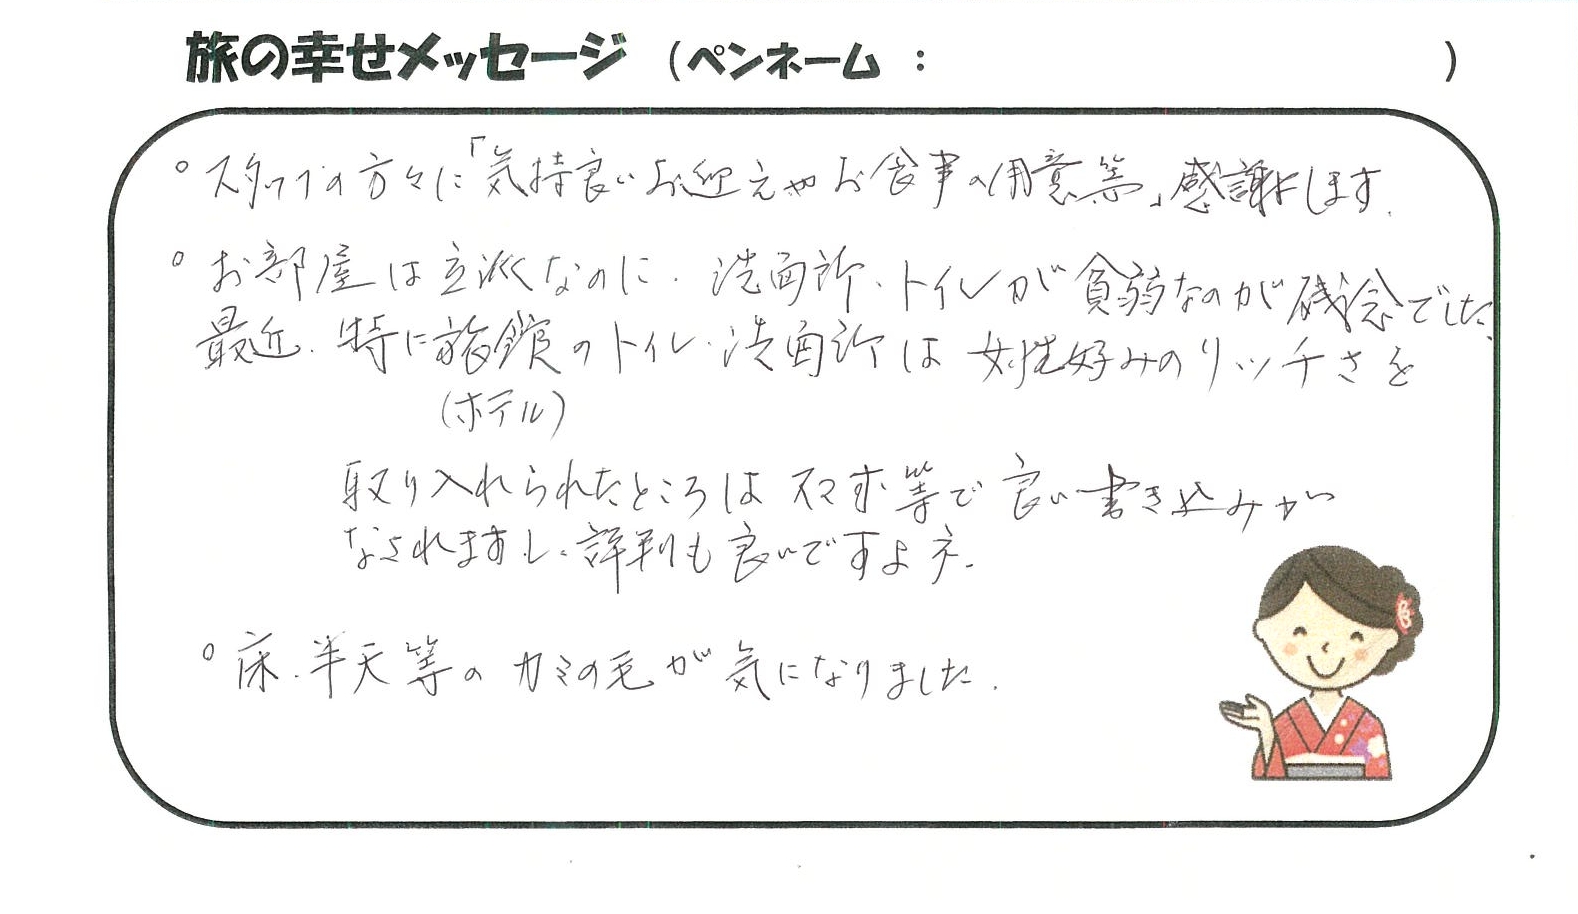 旅の幸せメッセージ （ペンネーム ： ）
○ スタッフの方々に「気持良いお迎えやお食事の用意等」感謝します.
○ お部屋は立派なのに. 洗面所.トイレが貧弱なのが残念でした.
最近. 特に旅館のトイレ.洗面所は 女性好みのリッチさを
(ホテル)
取り入れられたところは スマホ等で良い書き込みが
なされますし. 評判も良いですよネ.
○ 床.半天等の カミの毛が気になりました.